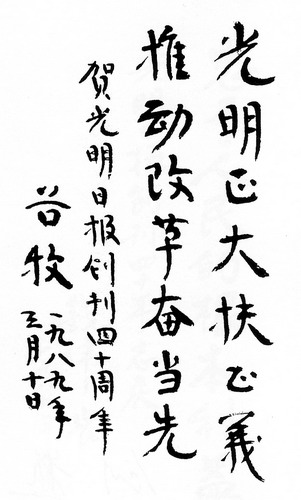 光明正大扶正义
推动改革奋当先
贺光明日报创刊四十周年
谷牧
一九八九年
三月十日